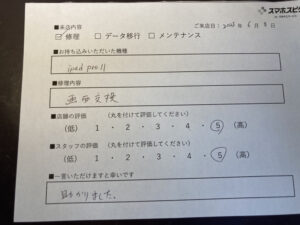 ■来店内容
ご来店日: 2024年 6月 8日
スマホスピタル
☑ 修理 □ データ移行 □ メンテナンス
■お持ち込みいただいた機種
ipad pro 11
■修理内容
画面交換
■店舗の評価 (丸を付けて評価してください)
(低) 1 ・ 2 ・ 3 ・ 4 ・ 5 (高)
■スタッフの評価 (丸を付けて評価してください)
(低) 1 ・ 2 ・ 3 ・ 4 ・ 5 (高)
■一言いただけますと幸いです
助かりました。